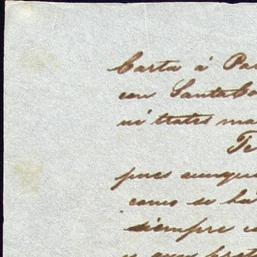 Carta á Pa
con Santa Co
ni trates ma
Te
pues aunque
como se ha
siempre c